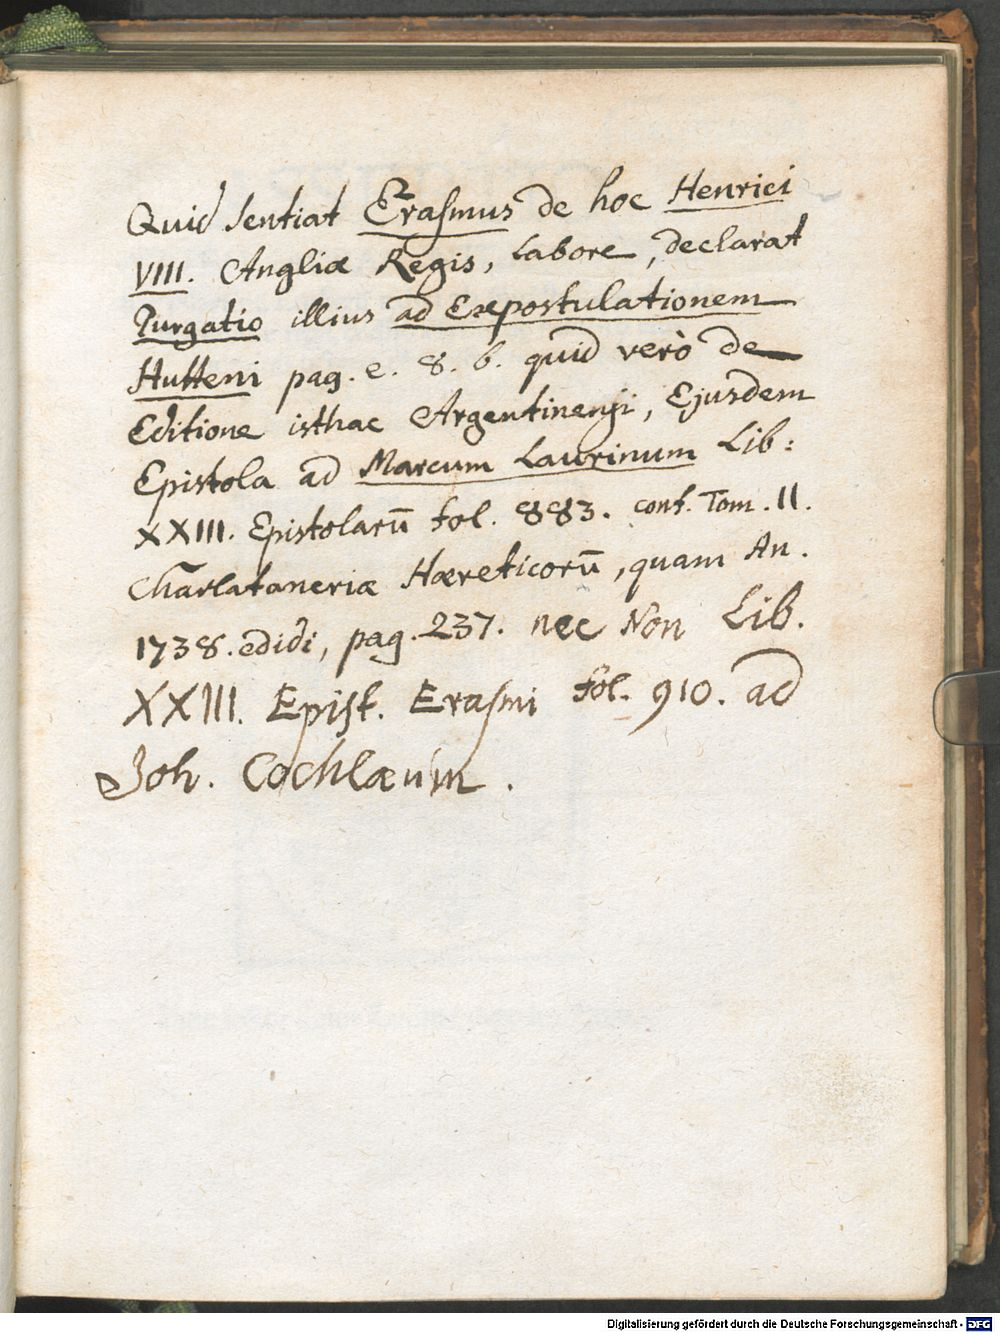 Quid sentiat Erasmus de hoc Henrici
VIII. Angliæ Regis, Labore, declarat
Purgatio illius ad Expostulationem
Hutteni pag. e. 8. b. quid verò de
Editione isthac Argentinensi, Ejusdem
Epistola ad Marcum Laurinum Lib:
XXIII. Epistolarū fol. 883. conf. Tom. II.
Charlataneriæ Hæreticorū, quam An.
1738. edidi, pag. 237. nec Non Lib.
XXIII. Epist. Erasmi fol. 910. ad
Joh. Cochlæum.
Digitalisierung gefördert durch die Deutsche Forschungsgemeinschaft - DFG